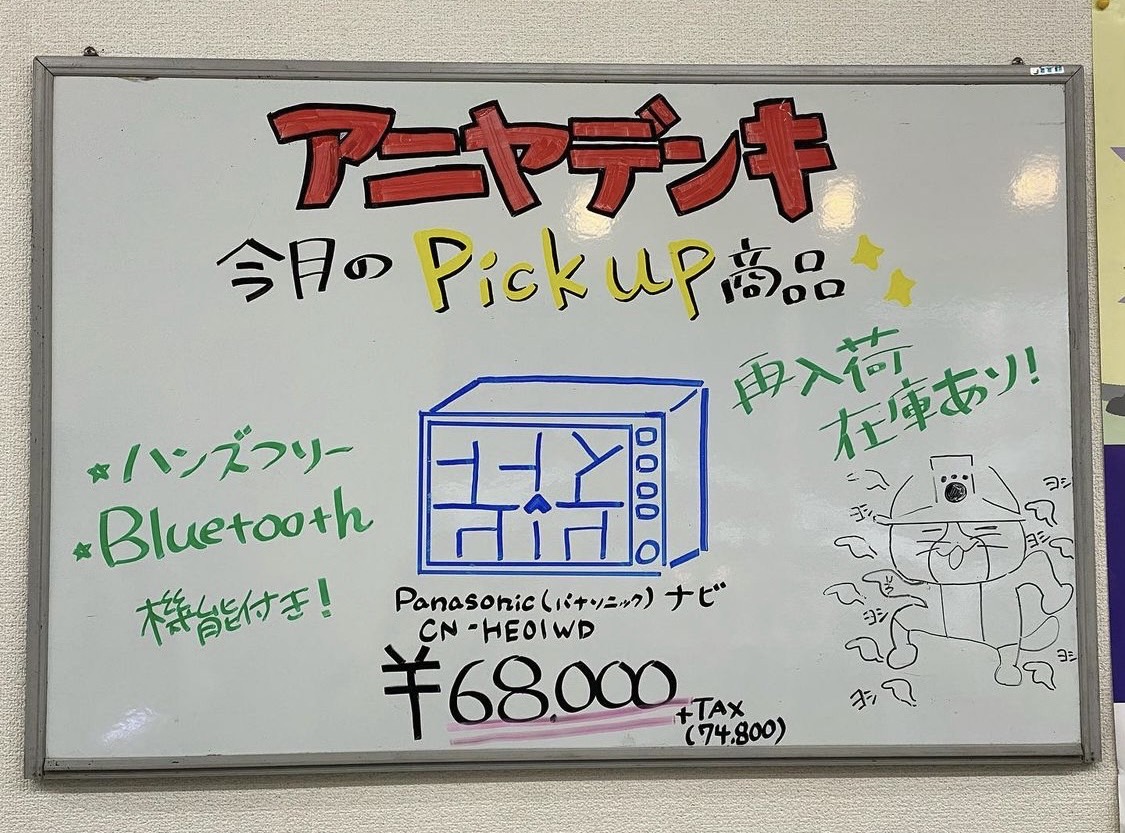 アニヤデンキ
今月のPick up商品
再入荷
在庫あり!
ハンズフリー
Bluetooth
機能付き!
Panasonic(パナソニック)ナビ
CN-HE01WD
¥68.000
+TAX
(74.800)
ヨシ
ヨシ
ヨシ
ヨシ
ヨシ
ヨシ